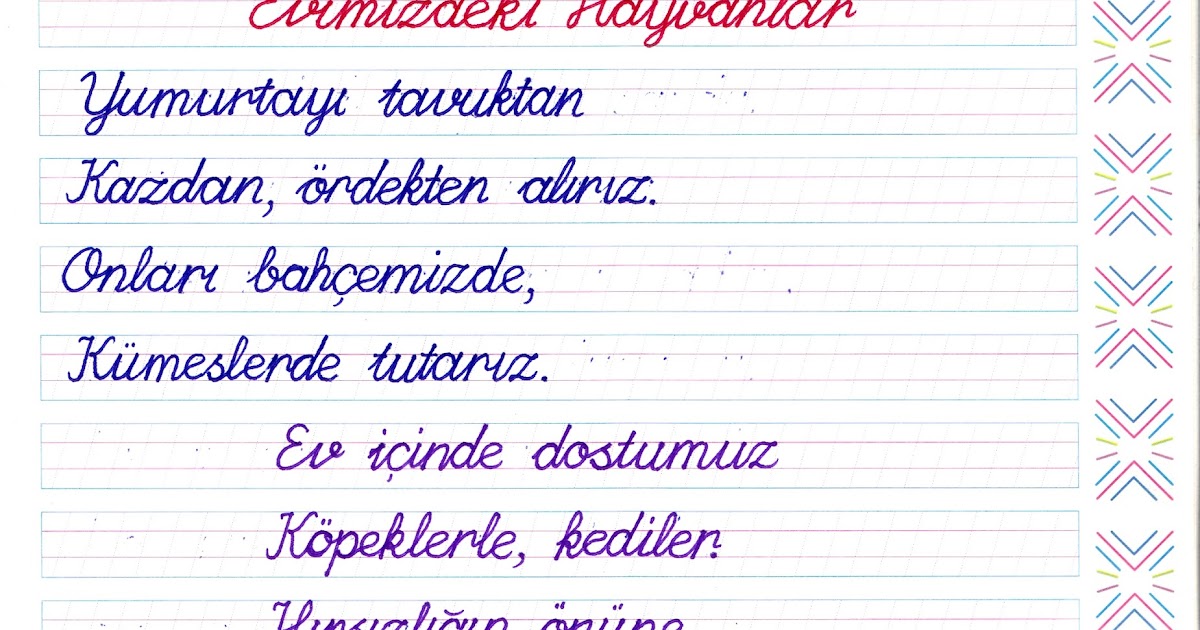 Evimizdeki Hayvanlar
Yumurtayı tavuktan
Kazdan, ördekten alırız.
Onları bahçemizde,
Kümeslerde tutarız.
Ev içinde dostumuz
Köpeklerle, kediler.
Hırsızlığın önüne